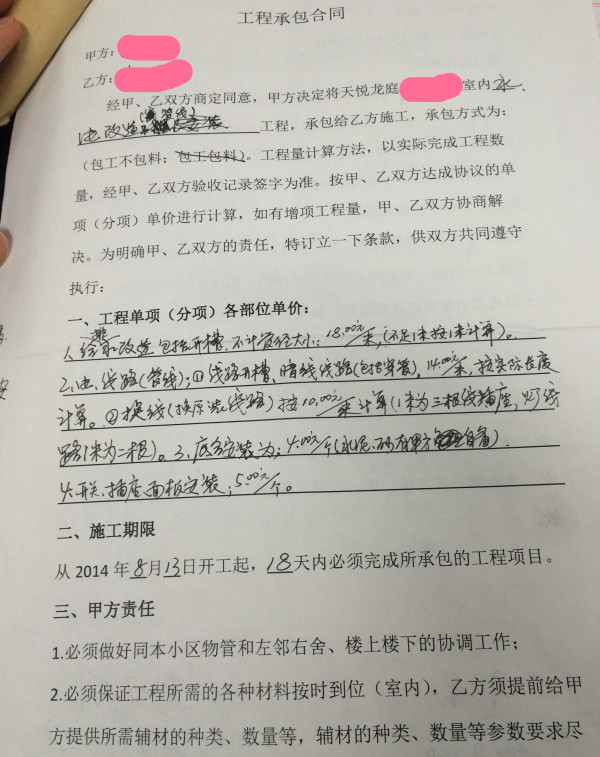 工程承包合同
甲方：
乙方：
经甲、乙双方商定同意，甲方决定将天悦龙庭 室内水、
电改造（含管线） 工程，承包给乙方施工，承包方式为：
（包工不包料；包工包料）。工程量计算方法，以实际完成工程数
量，经甲、乙双方验收记录签字为准。按甲、乙双方达成协议的单
项（分项）单价进行计算，如有增项工程量，甲、乙双方协商解
决。为明确甲、乙双方的责任，特订立一下条款，供双方共同遵守
执行：
一、工程单项（分项）各部位单价：
1、给排水改造包括开槽，不计管径大小：18.00元/米，（不足1米按1米计算）。
2、电、线路（管线）：①线路开槽、暗线线路（包括穿管），14.00元/米，按实际长度
计算。②换线（换原装线路）按10.00元/米计算（1米为三根线插座，灯线
路1米为二根）。3、底盒安装为：4.00元/个（水泥、砂有甲方自备）。
4、开关、插座面板安装：5.00元/个。
二、施工期限
从 2014 年8月13日开工起，18天内必须完成所承包的工程项目。
三、甲方责任
1.必须做好同本小区物管和左邻右舍、楼上楼下的协调工作；
2.必须保证工程所需的各种材料按时到位（室内），乙方须提前给甲
方提供所需辅材的种类、数量等，辅材的种类、数量等参数要求尽